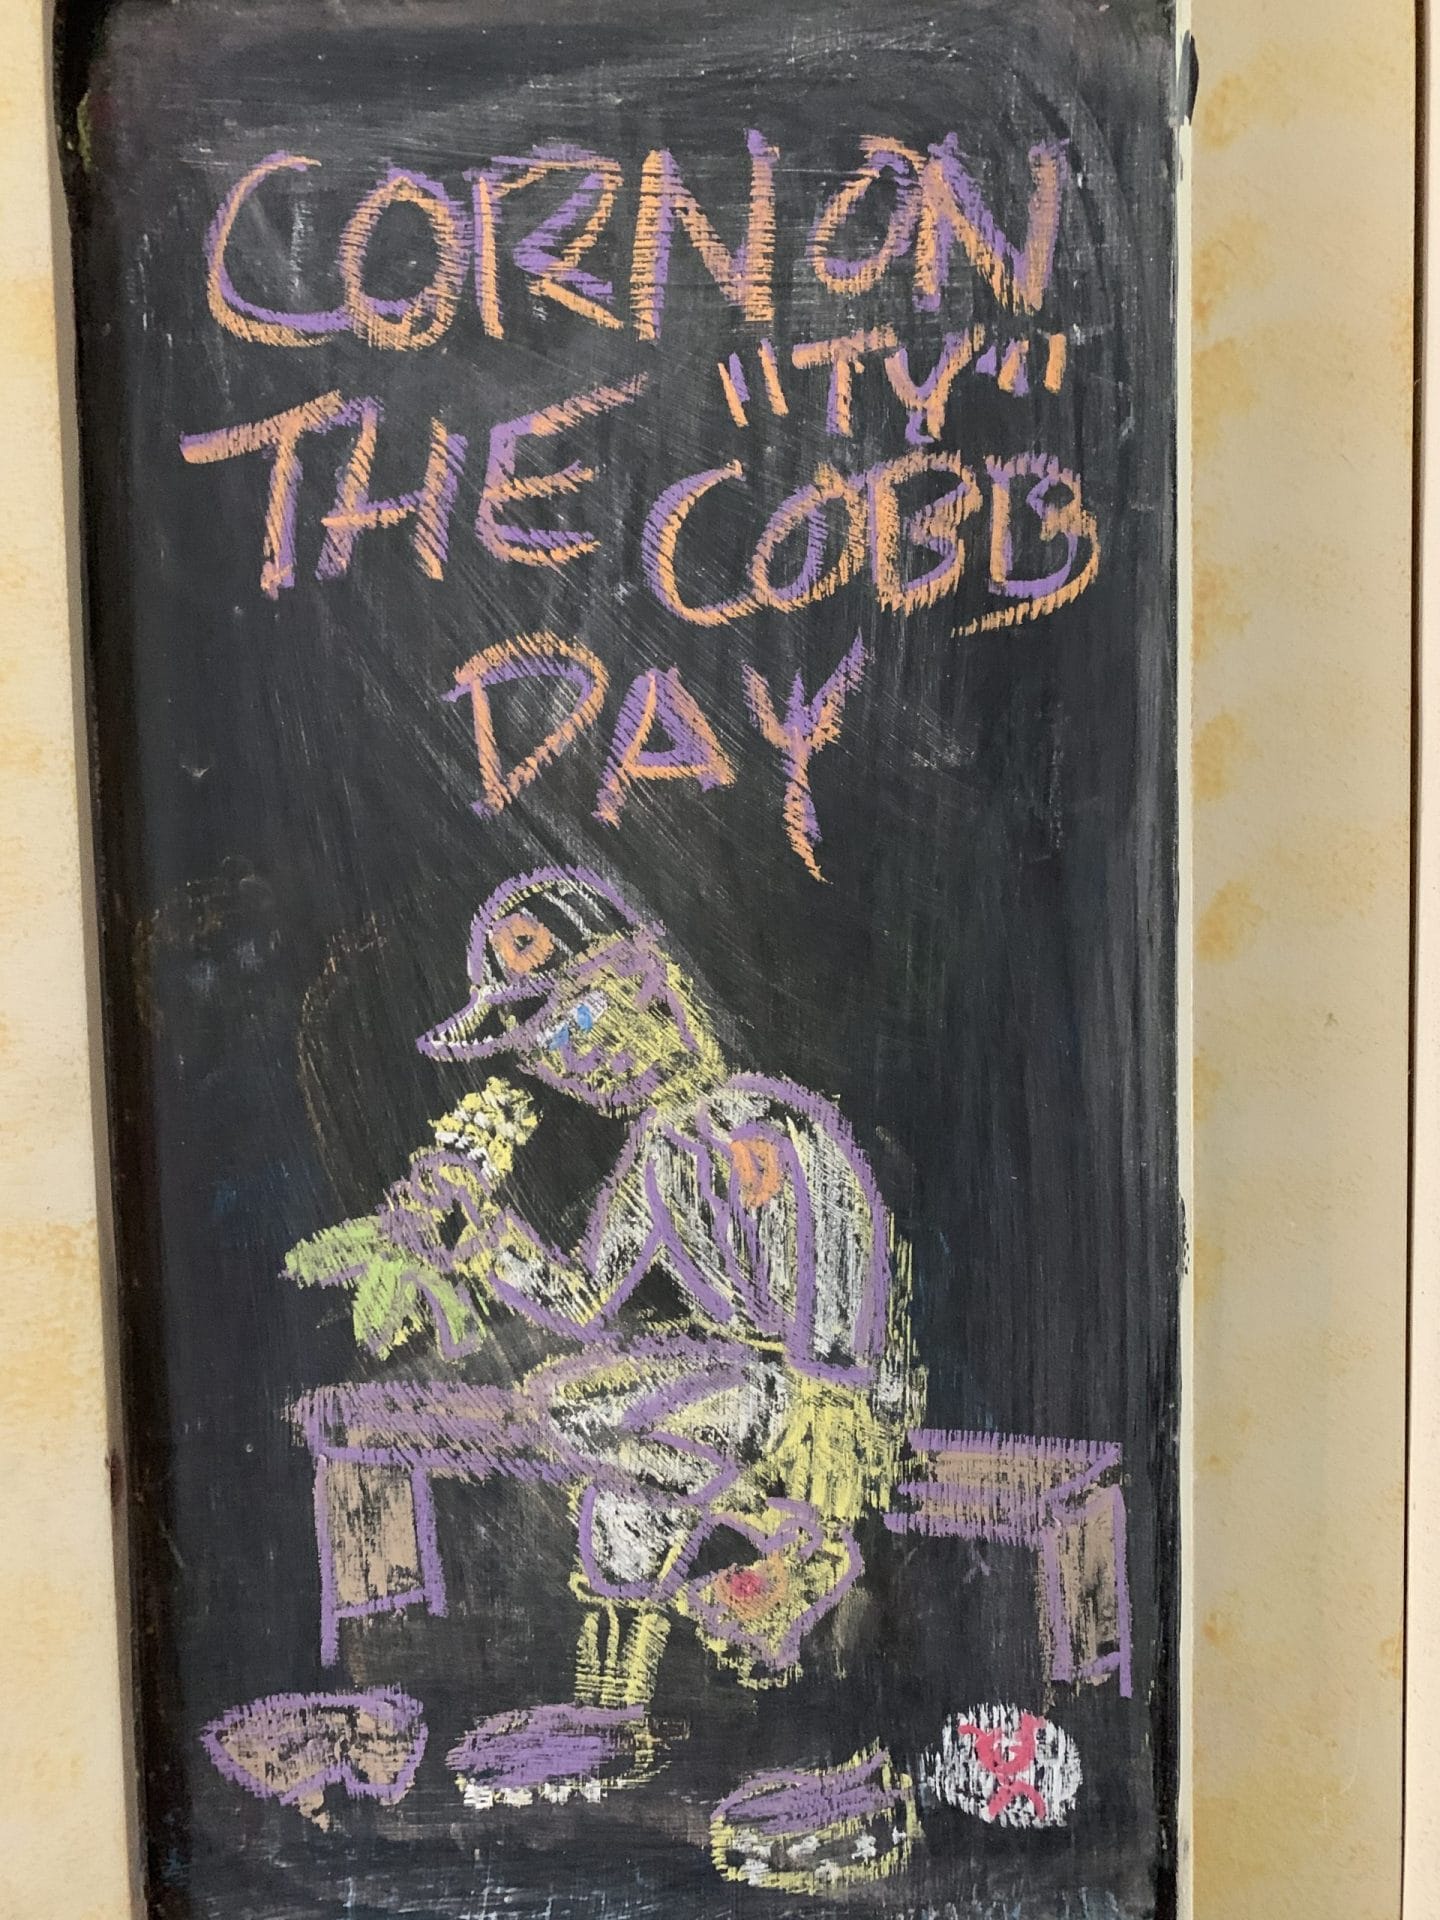 CORN ON
"TY"
THE COBB
DAY
D
D